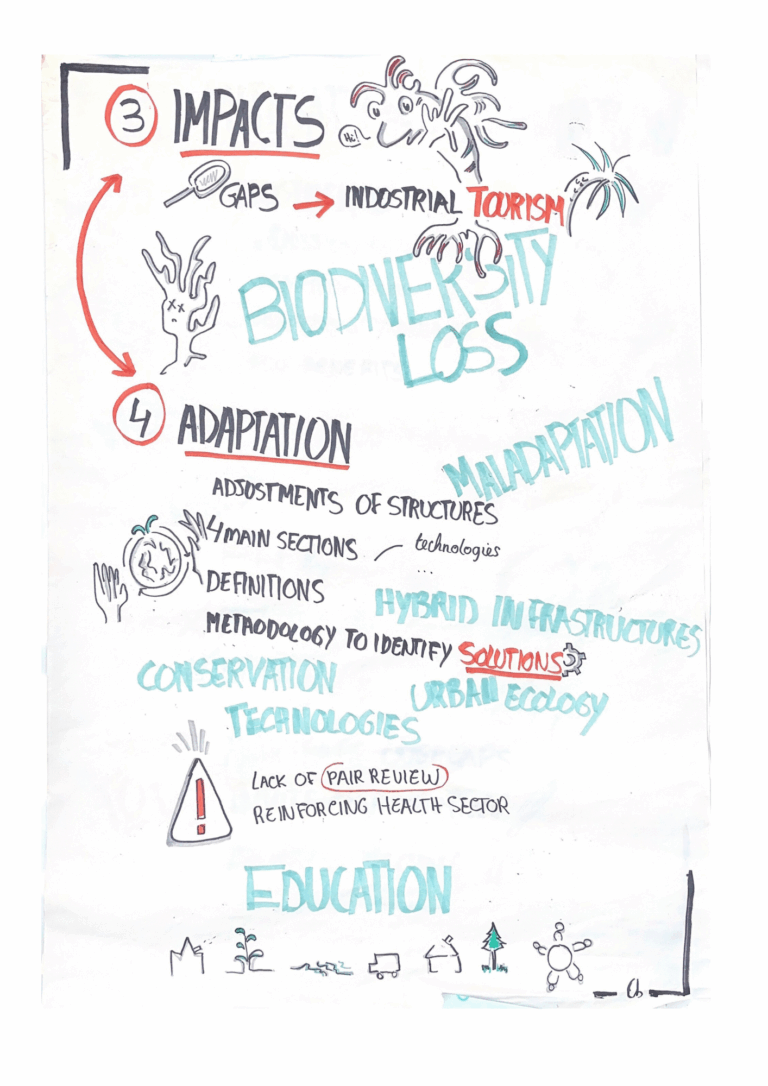 3 IMPACTS
Hi!
GAPS → INDOSTRIAL TOURISM
BIODIVERSITY
LOSS
4 ADAPTATION
MALADAPTATION
ADJUSTMENTS OF STRUCTURES
4 MAIN SECTIONS
technologies
...
DEFINITIONS
HYBRID INFRASTRUCTURES
METHODOLOGY TO IDENTIFY SOLUTIONS
CONSERVATION
URBAN ECOLOGY
TECHNOLOGIES
LACK OF PAIR REVIEW
REINFORCING HEALTH SECTOR
EDUCATION